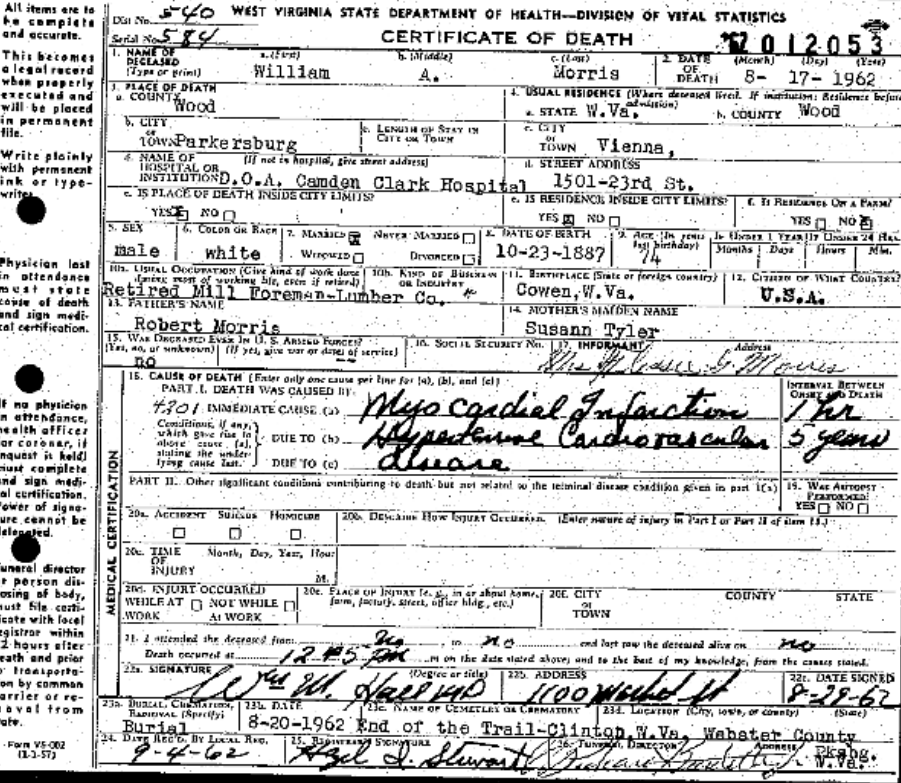 All items are to be complete and accurate.
This becomes a legal record when properly executed and will be placed in permanent file.
Write plainly with permanent ink or typewriter.
Physician last in attendance must state cause of death and sign medical certification.
If no physician in attendance, health officer or coroner, if inquest is held) must complete and sign medical certification. Power of signature cannot be delegated.
Funeral director or person disposing of body, must file certificate with local registrar within 72 hours after death and prior to transportation by common carrier or removal from state.
Form VS-002
Dist No. 540 WEST VIRGINIA STATE DEPARTMENT OF HEALTH—DIVISION OF VITAL STATISTICS
Serial No. 584 CERTIFICATE OF DEATH 012053
1. NAME OF DECEASED (Type or print) a. (First) William b. (Middle) A. c. (Last) Morris 2. DATE OF DEATH (Month) (Day) (Year) 8- 17- 1962
3. PLACE OF DEATH a. COUNTY Wood
4. USUAL RESIDENCE (Where deceased lived. If institution: Residence before admission) a. STATE W.Va. b. COUNTY Wood
b. CITY or TOWN Parkersburg c. LENGTH OF STAY IN CITY OR TOWN c. CITY or TOWN Vienna,
d. NAME OF HOSPITAL OR INSTITUTION (If not in hospital, give street address) D.O.A. Camden Clark Hospital d. STREET ADDRESS 1501-23rd St.
e. IS PLACE OF DEATH INSIDE CITY LIMITS? YES NO e. IS RESIDENCE INSIDE CITY LIMITS? YES NO f. IS RESIDENCE ON A FARM? YES NO
5. SEX male 6. COLOR OR RACE white 7. MARRIED NEVER MARRIED WIDOWED DIVORCED 8. DATE OF BIRTH 10-23-1887 9. AGE (In years last birthday) 74 IF UNDER 1 YEAR Months Days IF UNDER 24 HRS. Hours Min.
10a. USUAL OCCUPATION (Give kind of work done during most of working life, even if retired) 10b. KIND OF BUSINESS OR INDUSTRY Retired Mill Foreman-Lumber Co. 11. BIRTHPLACE (State or foreign country) Cowen, W.Va. 12. CITIZEN OF WHAT COUNTRY? U.S.A.
13. FATHER'S NAME Robert Morris 14. MOTHER'S MAIDEN NAME Susann Tyler
15. WAS DECEASED EVER IN U. S. ARMED FORCES? (Yes, no, or unknown) (If yes, give war or dates of service) no -- 16. SOCIAL SECURITY No. 17. INFORMANT Address Mrs Morris
18. CAUSE OF DEATH (Enter only one cause per line for (a), (b), and (c)) INTERVAL BETWEEN ONSET AND DEATH
PART I. DEATH WAS CAUSED BY:
4201 IMMEDIATE CAUSE (a) Myocardial Infarction 1 hr
Conditions, if any, which gave rise to above cause (a), stating the underlying cause last. DUE TO (b) Hypertensive Cardiovascular 5 years
DUE TO (c) disease
MEDICAL CERTIFICATION
PART II. Other significant conditions contributing to death but not related to the terminal disease condition given in part I(a) 19. WAS AUTOPSY PERFORMED? YES NO
20a. ACCIDENT SUICIDE HOMICIDE 20b. DESCRIBE HOW INJURY OCCURRED. (Enter nature of injury in Part I or Part II of item 18.)
20c. TIME OF INJURY Month, Day, Year, Hour M.
20d. INJURY OCCURRED WHILE AT WORK NOT WHILE AT WORK 20e. PLACE OF INJURY (e. g., in or about home, farm, factory, street, office bldg., etc.) 20f. CITY or TOWN COUNTY STATE
21. I attended the deceased from No to No and last saw the deceased alive on No
Death occurred at 12:45 PM m on the date stated above; and to the best of my knowledge, from the causes stated.
22a. SIGNATURE (Degree or title) Wm W. Hall MD 22b. ADDRESS 1100 Market St 22c. DATE SIGNED 8-29-62
23a. BURIAL, CREMATION, REMOVAL (Specify) Burial 23b. DATE 8-20-1962 23c. NAME OF CEMETERY OR CREMATORY End of the Trail-Clinton, W.Va. 23d. LOCATION (City, town, or county) (State) Webster County
24. DATE REC'D. BY LOCAL REG. 9-4-62 25. REGISTRAR'S SIGNATURE Hazel D. Stewart 26. FUNERAL DIRECTOR ADDRESS Pksbg. W.Va.